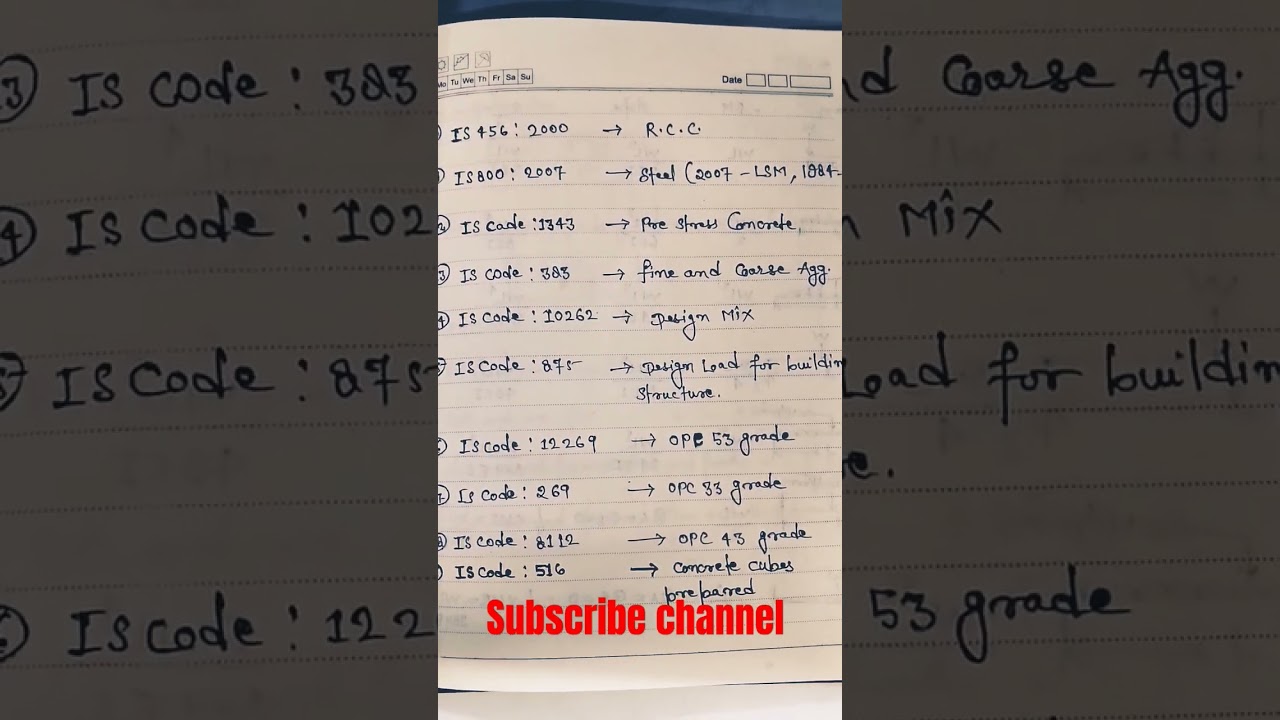 Mo Tu We Th Fr Sa Su Date
IS 456 : 2000 → R.C.C.
IS 800 : 2007 → Steel (2007 - LSM, 1984-
② IS code : 1343 → Pre stress Concrete,
③ IS code : 383 → fine and Coarse Agg.
④ IS code : 10262 → Design Mix
IS code : 875 → Design Load for buildin
structure.
IS code : 12269 → OPC 53 grade
IS code : 269 → OPC 33 grade
⑧ IS code : 8112 → OPC 43 grade
IS code : 516 → concrete cubes
prepared
Subscribe channel
3 IS code : 383
nd Coarse Agg.
④ IS code : 102
n Mix
IS code : 875
Load for buildin
e.
IS code : 122
53 grade